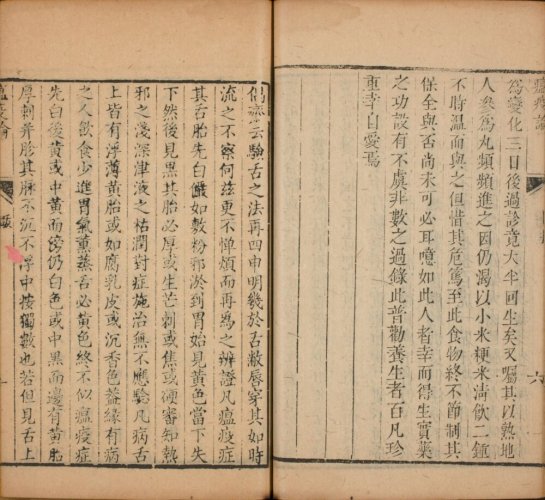 為變化三日後過診竟大半回生矣又囑其以熟地
人參為丸頻頻進之因仍渴以小米梗米清飲二鍾
不時溫而與之但惜其危篤至此食物終不節制其
保全與否尚未可必耳噫如此人者幸而得生實藥
之功設有不虞非數之過錄此普勸養生者百凡珍
重幸自愛焉
六
偈齋云驗舌之法再四申明幾於舌敝唇穿其如時
流之不察何茲更不憚煩而再為之辨證凡瘟疫症
其舌胎先白儼如數粉邪淤到胃始見黃色當下失
下然後見黑其胎必厚或生芒刺或焦或硬審知熱
邪之淺深津液之枯潤對症施治無不應驗凡病舌
上皆有浮薄黃胎或如腐乳皮或沉香色蓋緣有病
之人飲食少進胃氣薰蒸舌必黃色終不似瘟疫症
先白後黃或中黃而傍仍白色或中黑而邊有黃胎
厚刺界胗其脈不沉不浮中按獨數也若但見舌上
瘟疫論